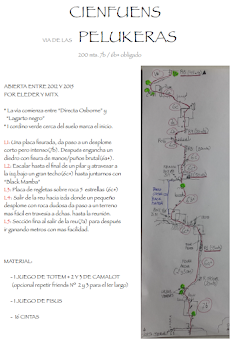 CIENFUENS
VIA DE LAS PELUKERAS
200 mts 7b / 6b+ obligado
ABIERTA ENTRE 2012 Y 2013
POR ELEDER Y MITX.
* La via comienza entre "Directa Osborne" y
"Lagarto negro"
* 1 cordino verde cerca del suelo marca el inicio.
L1: Una placa fisurada, da paso a un desplome
corto pero intenso(7b). Despues engancha un
diedro con fisura de manos/puños brutal(6a+).
L2: Escalar hasta el final de un pilar y atravesar a
la izq bajo un gran techo(6c+) hasta juntarnos con
"Black Mamba"
L3: Placa de regletas sobre roca 5 estrellas (6c+)
L4: Salir de la reu hacia izda donde un pequeño
desplome con roca dudosa da paso a un terreno
mas fácil en travesia a dchas. hasta la reunión.
L5: Sección fina al salir de la reu(7b) para después
ir ganando metros con mas facilidad.
MATERIAL:
- 1 JUEGO DE TOTEM + 2 Y 3 DE CAMALOT
(opcional repetir friends Nº 2 y 3 para el 1er largo)
- 1 JUEGO DE FISUS
- 16 CINTAS